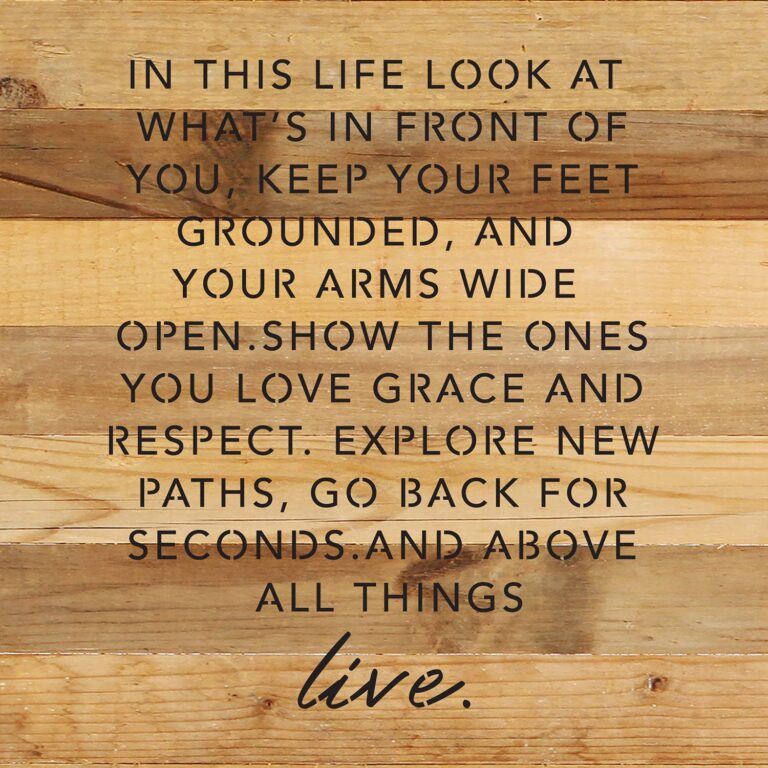 IN THIS LIFE LOOK AT
WHAT'S IN FRONT OF
YOU, KEEP YOUR FEET
GROUNDED, AND
YOUR ARMS WIDE
OPEN.SHOW THE ONES
YOU LOVE GRACE AND
RESPECT. EXPLORE NEW
PATHS, GO BACK FOR
SECONDS.AND ABOVE
ALL THINGS
live.